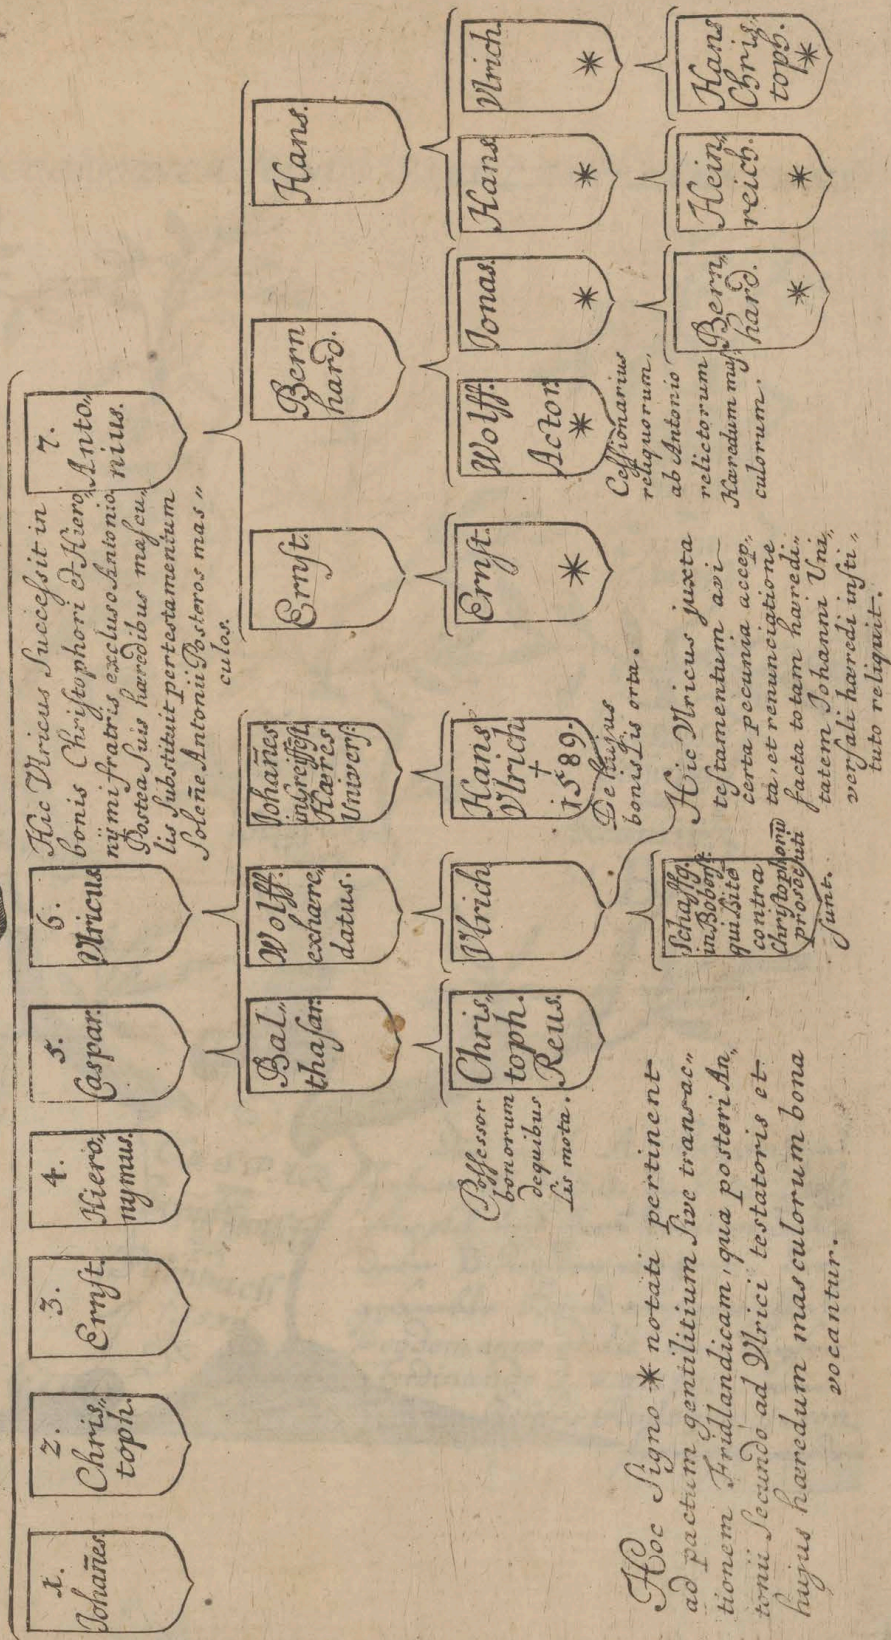 1.
Johañes.
2.
Chris„
toph.
3.
Ernst.
4.
Hiero„
nymus.
5.
Caspar.
6.
Vlricus
7.
Anto„
nius.
Hic Vlricus Successit in
bonis Christophori & Hiero„
nÿmi fratris excluso Antonio
Postea Suis hæredibus mascu„
lis Substituit per testamentum
Soleñe Antonii Posteros mas„
culos.
Bal„
thasar.
Wolff.
exhære„
datus.
Johañes
Hæres
Univers:
Ernst.
Bern
hard.
Hans.
Possessor
bonorum
de quibus
Lis mota.
Chris„
toph.
Reus.
Vlrich
Hans
Vlrich
†
1589.
De hujus
bonis Lis orta.
Ernst.
*
Wolff.
Actor
*
Cessionarius
reliquorum
ab Antonio
relictorum
Hæredum mas„
culorum.
Jonas.
*
Hans
*
Vlrich.
*
Schaffg.
in Bobers:
qui Lite
contra
Christophorū
prosecuti
sunt.
Hic Vlricus juxta
testamentum avi
certa pecunia accep„
ta, et renunciatione
facta totam hæredi„
tatem Johanni Uni„
versali hæredi insti„
tuto reliquit.
Bern„
hard.
*
Hein„
reich.
*
Hans
Chris„
toph.
*
Hoc Signo * notati pertinent
ad pactum gentilitium Sive transac„
tionem Fridlandicam, qua posteri An„
tonii Secundo ad Vlrici testatoris et
hujus hæredum masculorum bona
vocantur.